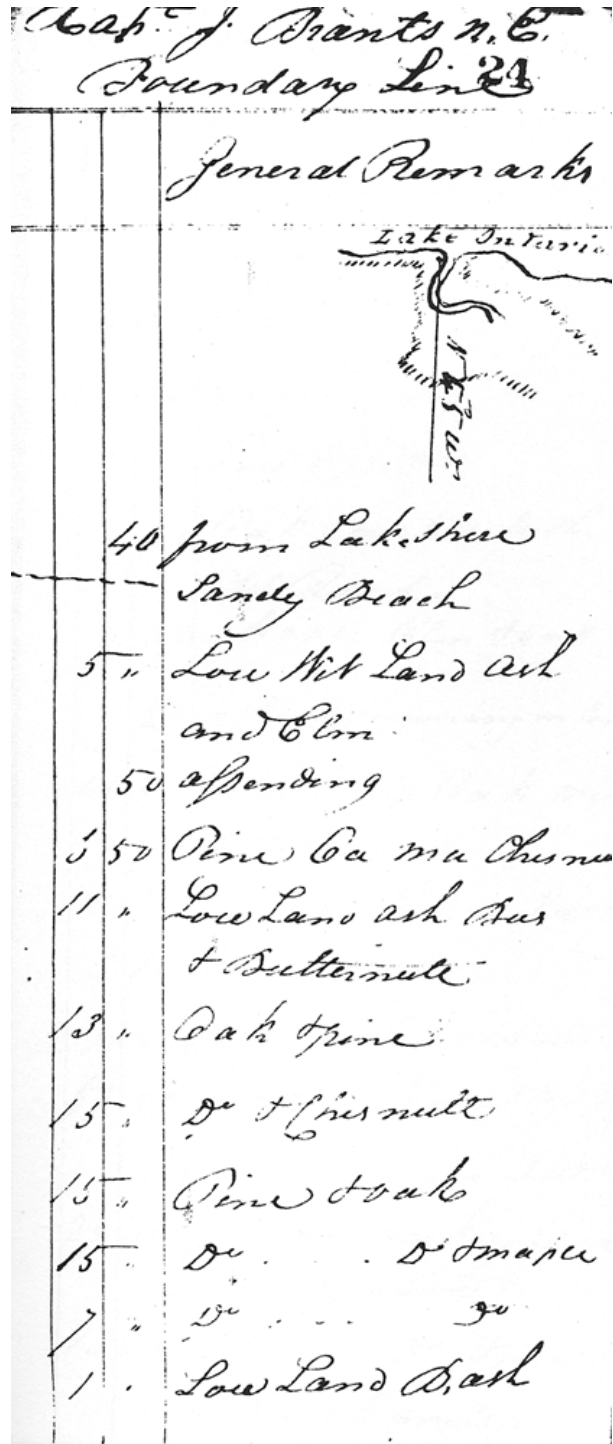 Capt. J. Brants N. E.
Boundary Line 21
General Remarks
Lake Ontario
N 45 W.
40 from Lake Shore
Sandy Beach
5 " Low Wet Land Ash
and Elm
50 assending
3 50 Pine Oa Ma Chesnu
11 " Low Land ash Bas
& Butternutt
13 " Oak & pine
15 " Do & Chesnutt
15 " Pine & oak
15 " Do . . Do & maple
7 " Do . . . Do
1 . Low Land B. ash